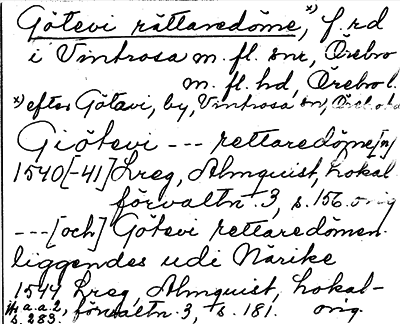 Götevi rättaredöme,*) f.rd
i Vintrosa m.fl. snr, Örebro
m.fl. hd, Örebro l.
*) efter Götavi, by, Vintrosa sn, Örebro hd
Giötevi --- rettaredöme[n]
1540[-41] Lreg, Almquist, Lokal
förvaltn. 3, s. 156. orig
---[och] Götevi rettaredömen
liggendes udi Närike
1544 Lreg, Almquist, Lokal-
a.a. 2, förvaltn. 3, s. 181. orig.
s. 283.